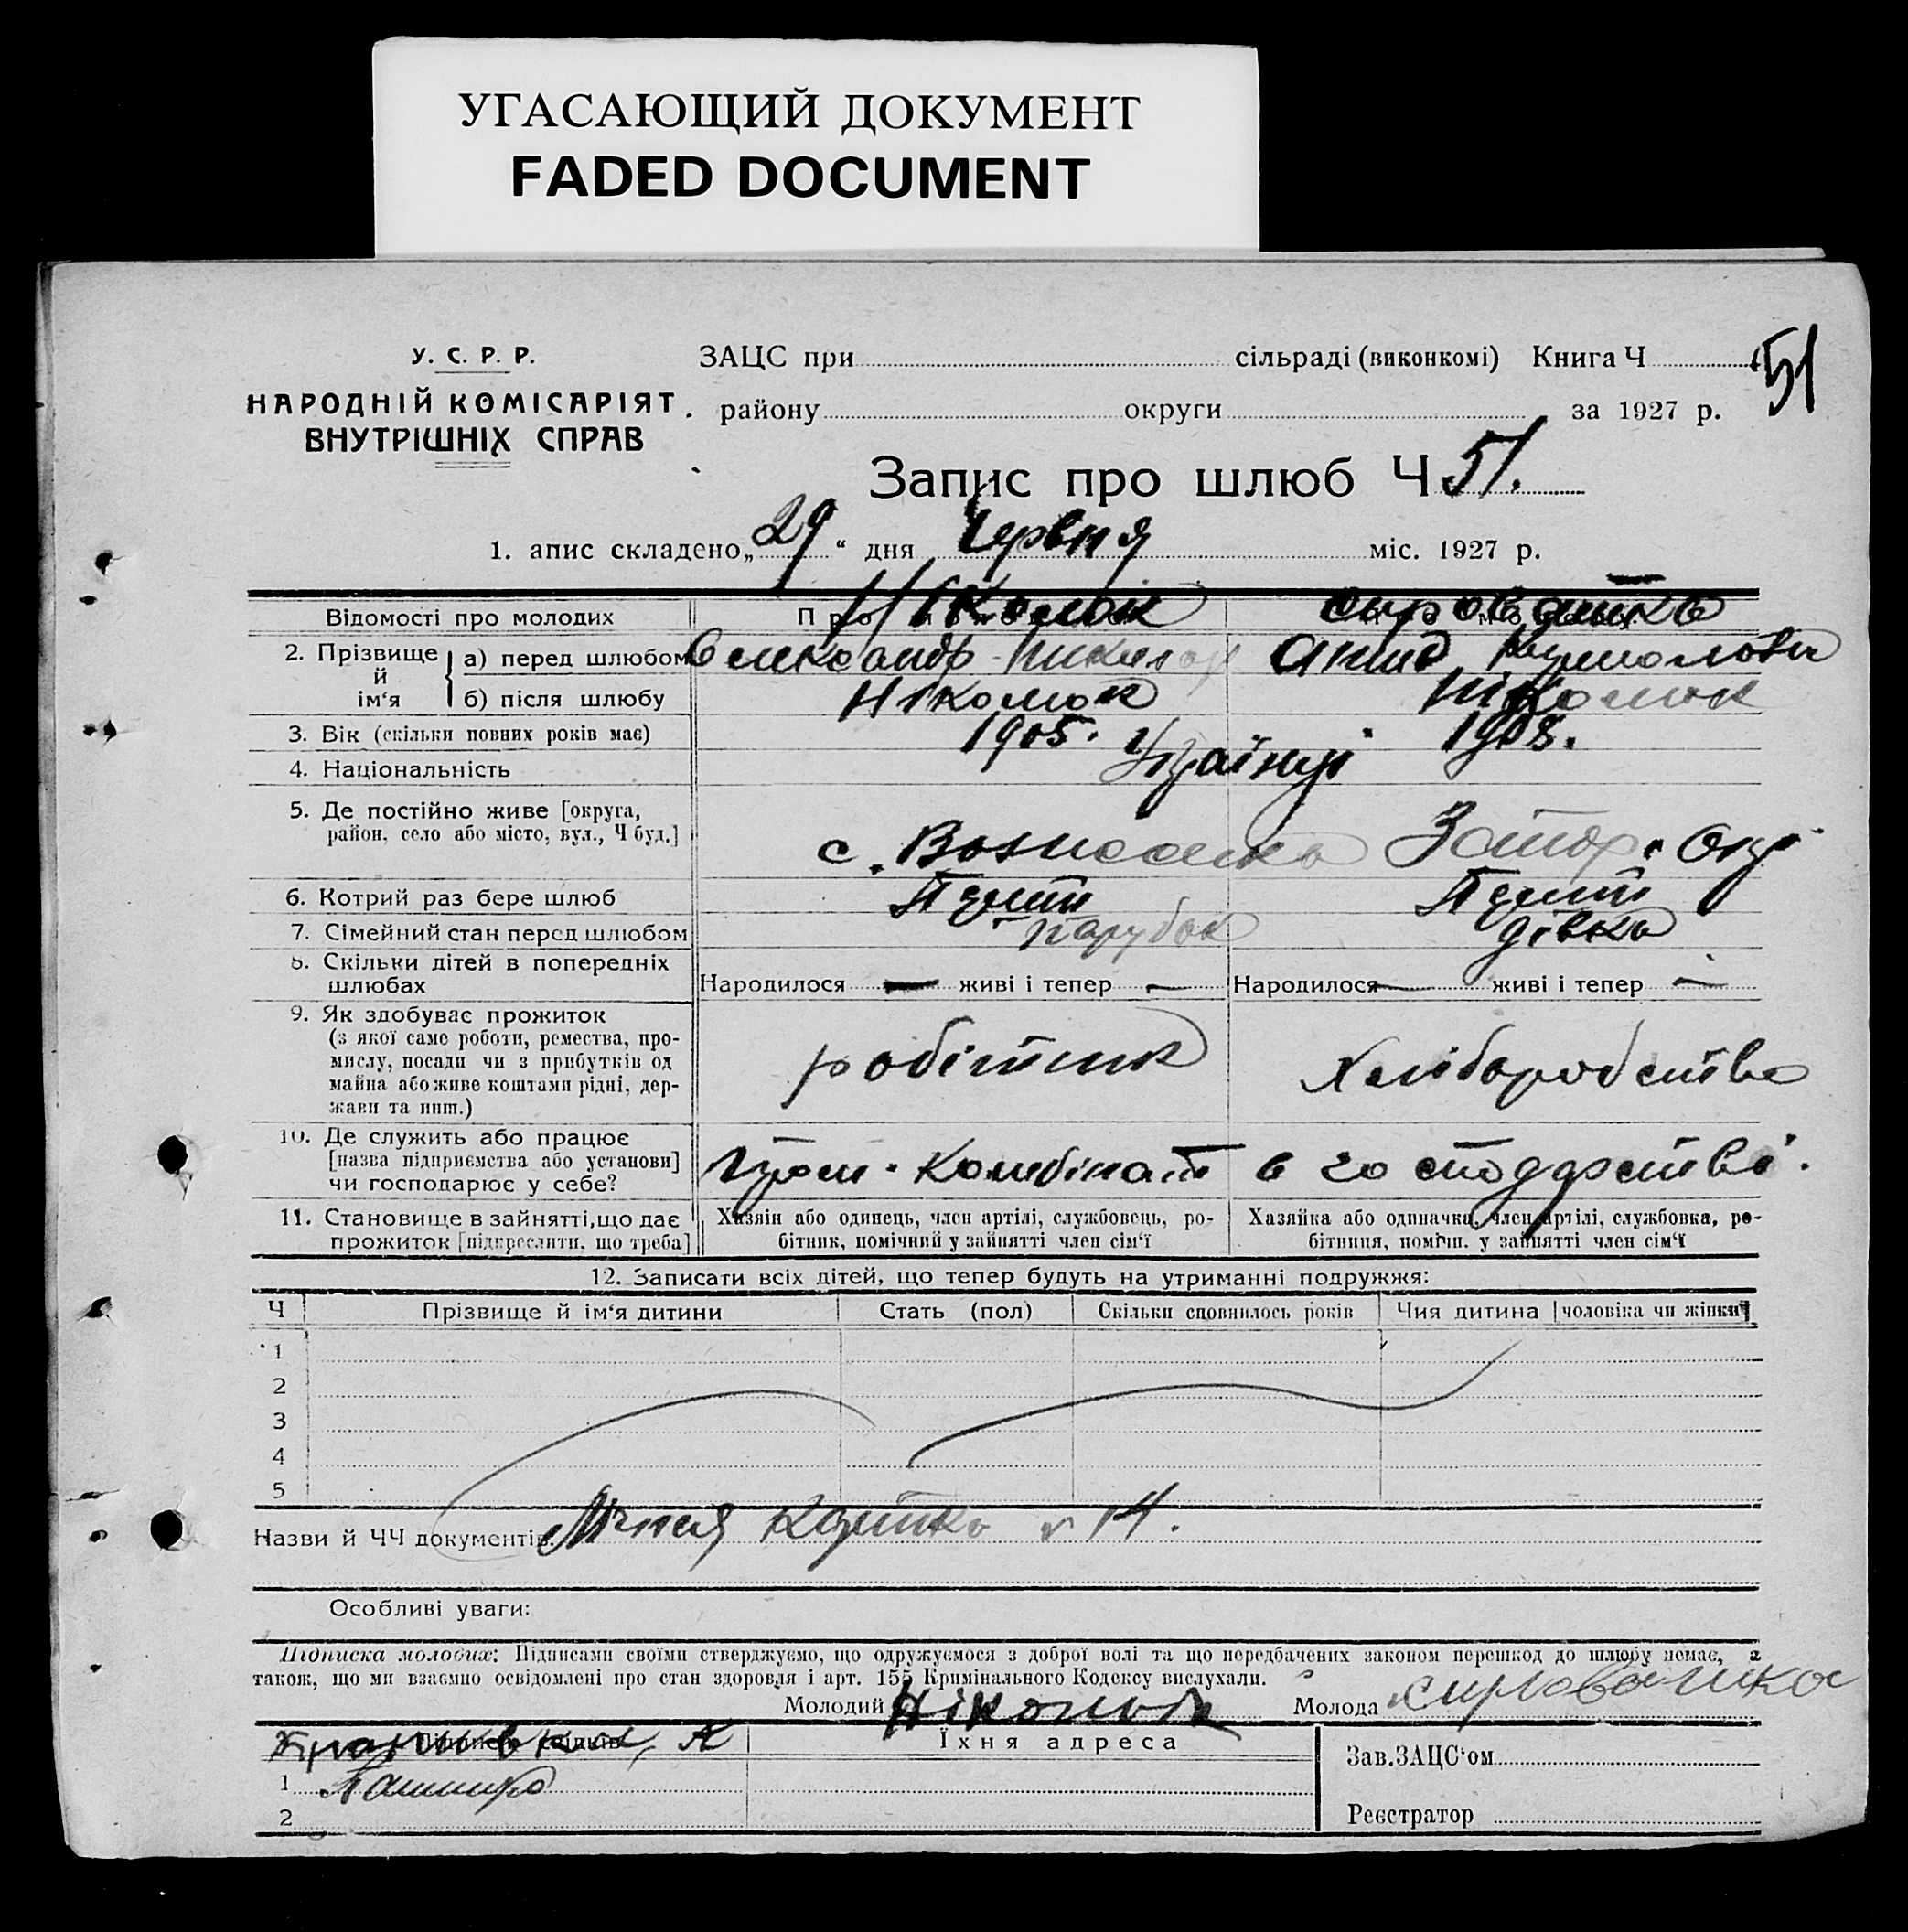 УГАСАЮЩИЙ ДОКУМЕНТ
FADED DOCUMENT
У. С. Р. Р.
НАРОДНІЙ КОМІСАРІЯТ
ВНУТРІШНІХ СПРАВ
ЗАЦС при сільраді (виконкомі) Книга Ч 51
району округи за 1927 р.
Запис про шлюб Ч 51.
1. апис складено „29“ дня Червня міс. 1927 р.
Відомості про молодих
Ніколюк
2. Прізвище й ім‘я
а) перед шлюбом Олександр
б) після шлюбу Ніколюк Ніколюк
3. Вік (скільки повних років має) 1905. 1908.
4. Національність Українці
5. Де постійно живе [округа,
район, село або місто, вул., Ч буд.]
с. Вознесенка Запор. Окр
6. Котрий раз бере шлюб Перший Перший
7. Сімейний стан перед шлюбом парубок дівка
8. Скільки дітей в попередніх
шлюбах
Народилося — живі і тепер — Народилося — живі і тепер —
9. Як здобуває прожиток
(з якої саме роботи, ремества, про-
мислу, посади чи з прибутків од
майна або живе коштами рідні, дер-
жави та инш.)
робітник Хліборобство
10. Де служить або працює
[назва підприємства або установи]
чи господарює у себе?
Комбінат в господарстві.
11. Становище в зайнятті, що дає
прожиток [підкреслити, що треба]
Хазяін або одинець, член артілі, службовець, ро-
бітник, помічний у зайнятті член сім‘ї
Хазяйка або одиначка, член артілі, службовка, ро-
бітниця, помічн. у зайнятті член сім‘ї
12. Записати всіх дітей, що тепер будуть на утриманні подружжя:
Ч Прізвище й ім‘я дитини Стать (пол) Скільки сповнилось років Чия дитина [чоловіка чи жінки]
1
2
3
4
5
Назви й ЧЧ документів: Лічная Карточка № 14.
Особливі уваги:
Підписка молодих: Підписами своїми стверджуємо, що одружуємося з доброї волі та що передбачених законом перешкод до шлюбу немає, а
також, що ми взаємно освідомлені про стан здоровля і арт. 155 Кримінального Кодексу вислухали.
Молодий Ніколюк Молода
Підписи свідків Їхня адреса
1
2
Зав.ЗАЦС‘ом
Реєстратор